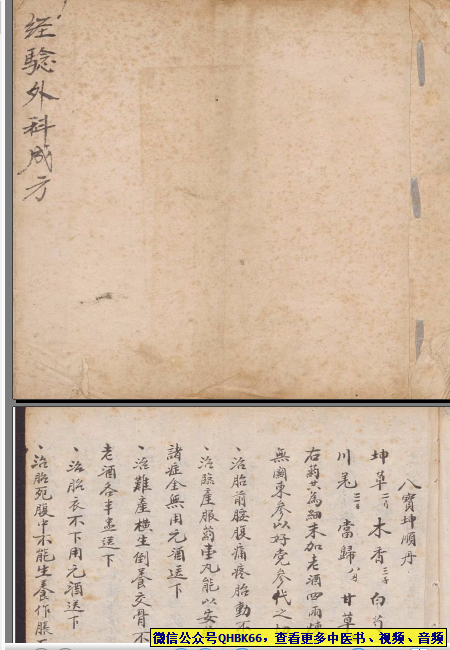 经驗外科成方
八寶坤順丹
坤草 木香 白芍
川芎 當歸 甘草
右药共為細末加老酒四兩
無関東參以好党參代之
、治胎前腰腹痛疼胎動不
、治臨產服药壹丸能以安
諸症全無用元酒送下
、治難產橫生倒養交骨不
老酒各半盅送下
、治胎衣不下用元酒送下
、治胎死腹中不能生養作脹
微信公众号QHBK66，查看更多中医书、视频、音频